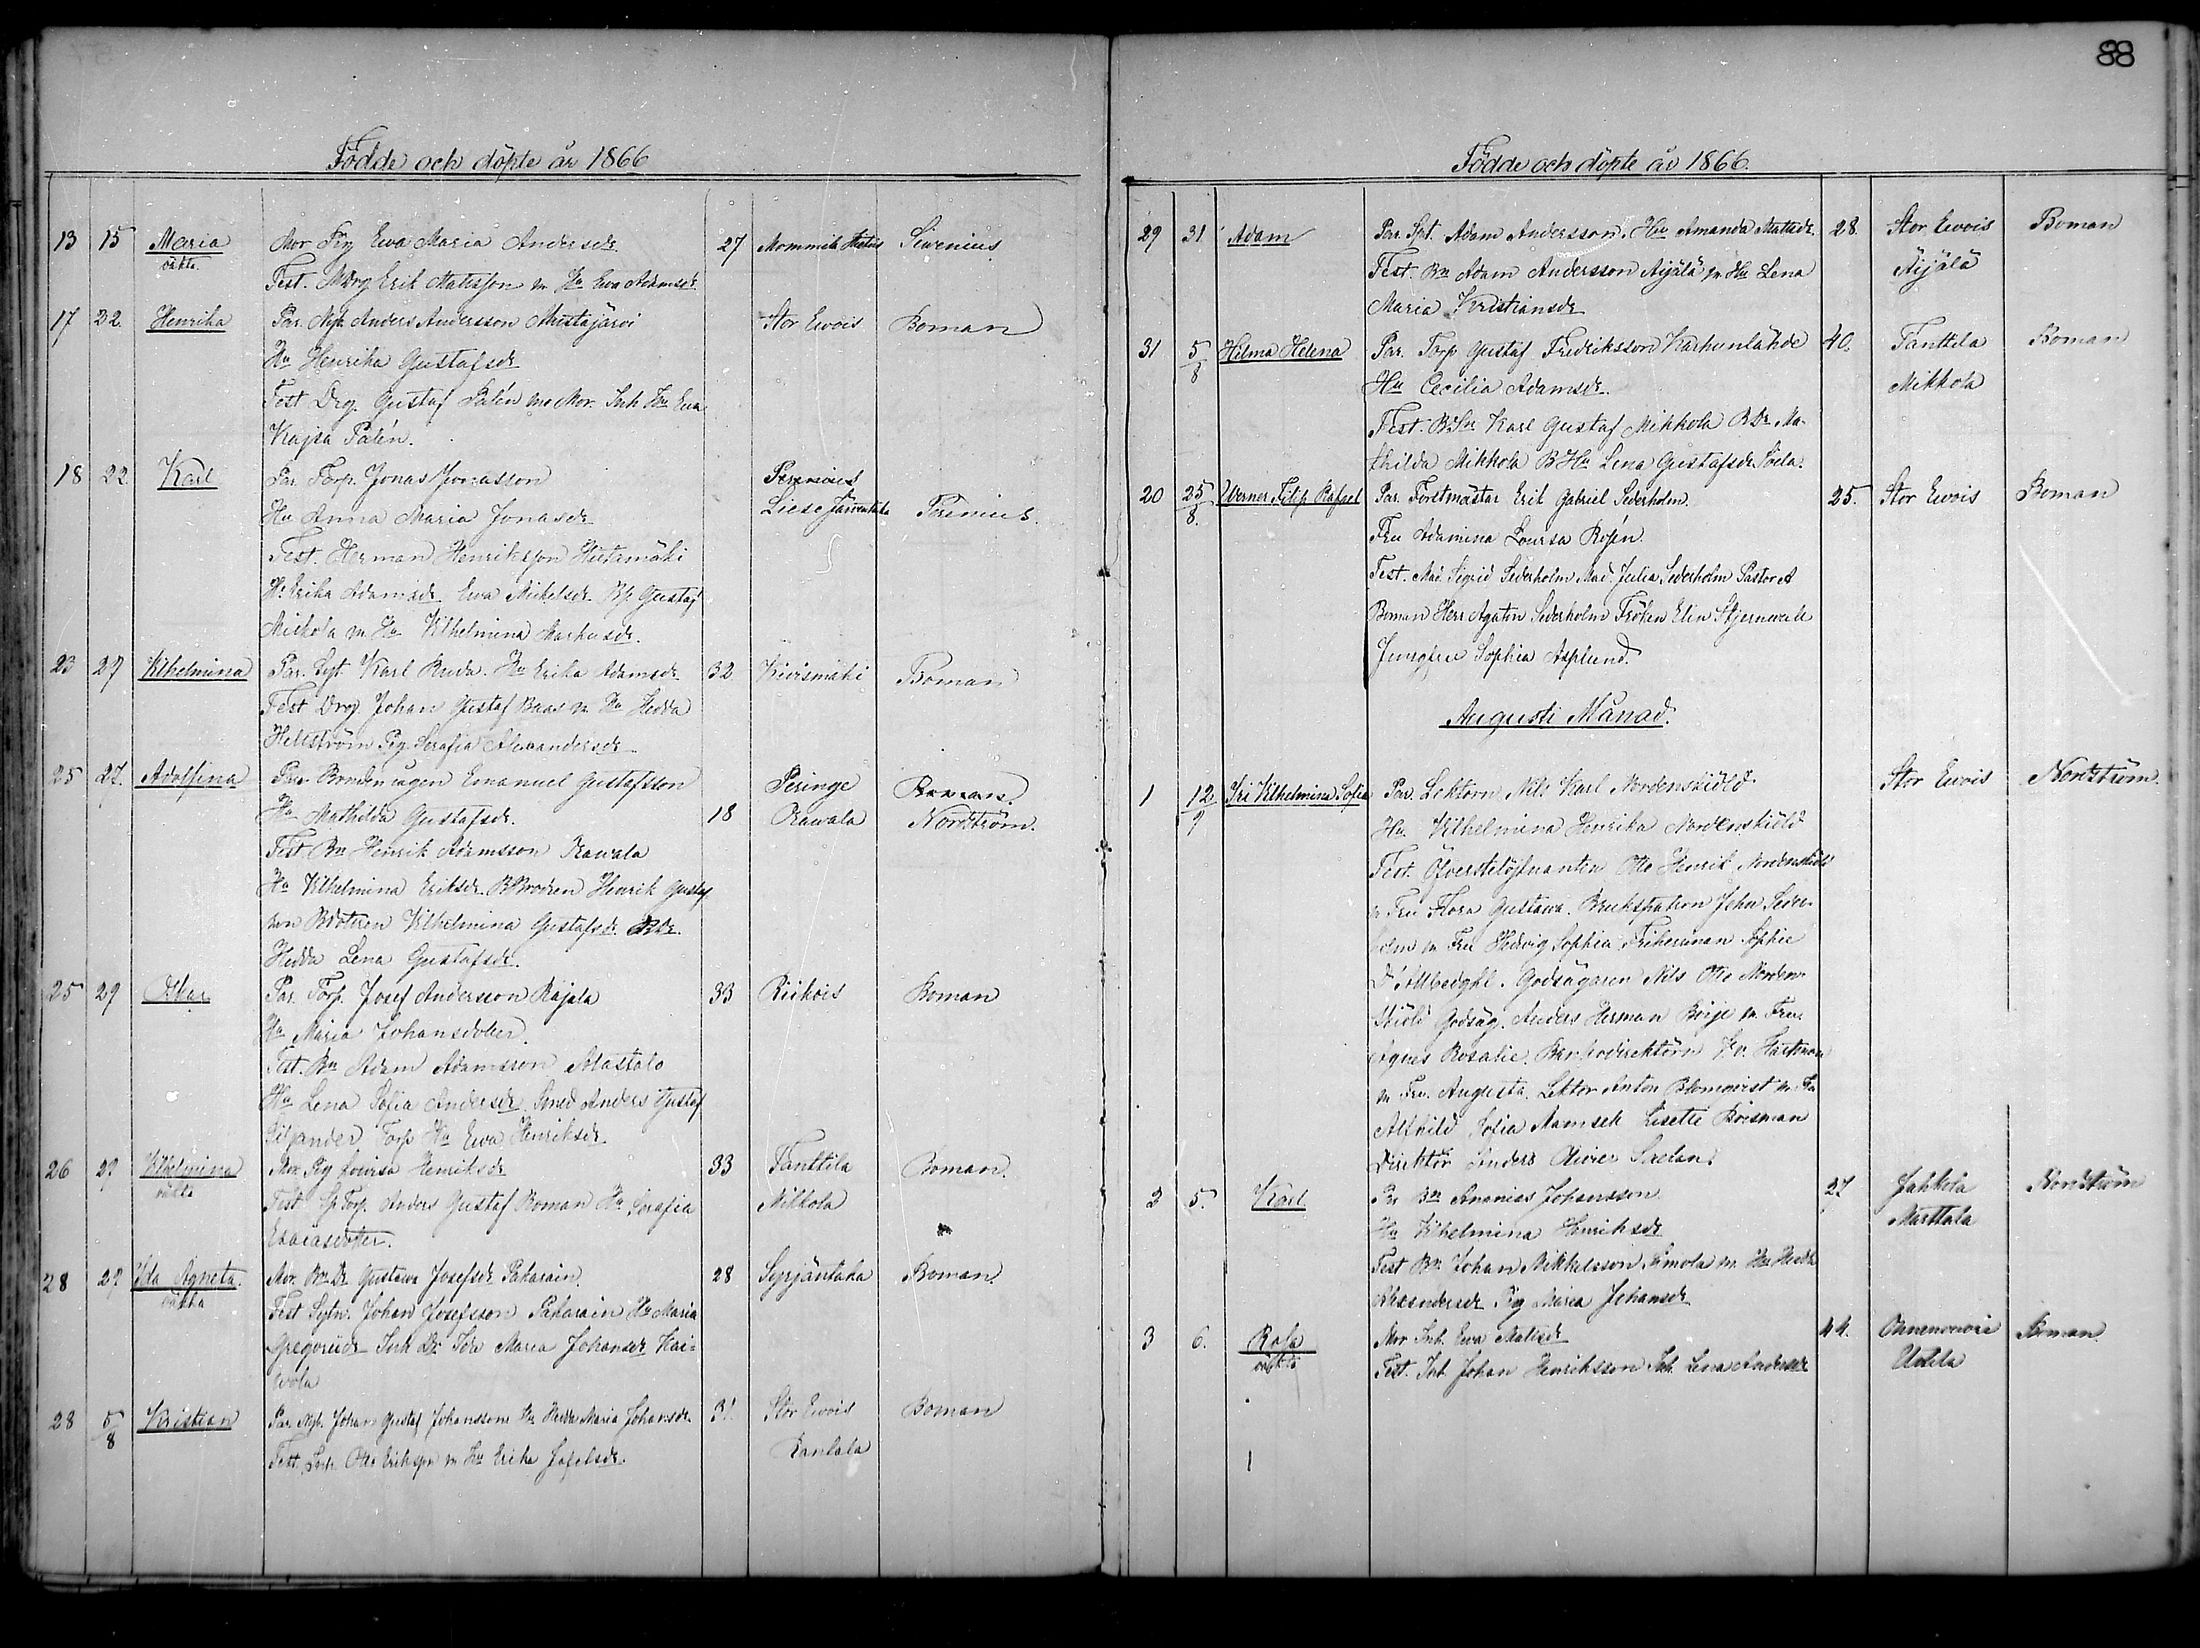 88
Födde och döpte år 1866
13 15 Maria Mor Pig Ewa Maria Andersdr 27 Mommila Siwenius
oäkta
Test. Erik Matsson m Hu Ewa Adamsdr
17 22. Henrika Par. Anders Andersson Mustajärwi Stor Ewois Boman
Hu Henrika Gustafsdr
Test Drg. Gustaf Palén Mor. Inh Hu Ewa
Kajsa Palén.
18 22. Karl Par Torp. Jonas Jonasson
Hu Anna Maria Jonasdr Liese
Test. Herman Henriksson
Hu Erika Adamsdr Ewa Mickelsdr Gustaf
Mickola m Hu Wilhelmina Markusdr.
23 27 Wilhelmina Par. Karl Ruda. Hu Erika Adamsdr 32 Boman
Test Drg. Johan Gustaf m Hu Hedda
Hellström Pig Serafia Alexandersdr
25 27. Adolfina Par. Emanuel Gustafsson Peringe Boman.
Hu Mathilda Gustafsdr. 18 Rawala Nordström.
Test Bn Henrik Adamsson Rawala
Hu Wilhelmina Eriksdr. Henrik Gustaf
Wilhelmina Gustafsdr.
Hedda Lena Gustafsdr.
25 29 Oskar Par. Torp. Josef Andersson Rajala 33 Riihois Boman
Hu Maria Johansdotter.
Test. Bn Adam Adamsson Alastalo
Hu Lena Sofia Andersdr. Smed Anders Gustaf
Torp Hu Ewa Henriksdr.
26 29 Wilhelmina Mor Pig Lovisa Henriksdr 33 Tanttila Boman.
oäkta Test Torp. Anders Gustaf Boman Hu Serafia Mikkola
Esaiasdotter.
28 29 Ida Agneta. Mor. Gustawa Josefsdr Pakarain. 28 Syrjäntaka Boman.
oäkta
Test Johan Josefsson Pakarain Hu Maria
Gregoriidr Inh Maria Johansdr Kai-
wola
28 5/8 Kristian Par. Johan Gustaf Johansson Hu Hedda Maria Johansdr. 31. Stor Ewois Boman
Test. Inh Otto Eriksson m Hu Erika Josefsdr. Rantala
Födde och döpte år 1866.
29 31 Adam Par. Spt. Adam Andersson. Hu Amanda Mattsdr. 28. Stor Ewois Boman
Test. Bn Adam Andersson Äijälä m Hu Lena Äijälä
Maria Kristiansdr
31 5/8 Hilma Helena Par. Torp Gustaf Fredriksson Karhunlähde 40. Tanttila Boman
Hu Cecilia Adamsdr. Mikkola
Test. Karl Gustaf Mikkola Ma-
thilda Mikkola Lena Gustafsdr
20 25/8. Werner Filip Rafael Par. Forstmästar Erik Gabriel Sederholm. 25. Stor Ewois Boman
Fru Adamina Lovisa Rosén.
Test. Mad. Sigrid Sederholm Mad. Julia Sederholm Pastor A
Boman Herr Agaton Sederholm Fröken Elin Stjernvall
Jungfru Sophia Asplund.
Augusti Månad.
1 12/9 Iri Wilhelmina Sofia Par. Lektorn Nils Karl Nordenskiöld Stor Ewois Nordström.
Hu. Wilhelmina Henrika Nordenskiöld
Test. Öfverstelöjtnanten Otto Henrik Nordenskiöld
m Fru Flora Gustawa. Brukspatron John Seder-
holm m Fru Hedvig Sophia Friherinnan Sophie
Godsägaren Nils Otto Norden-
skiöld Godsäg. Anders Herman Börje m Fru
Agnes Rosalie. Bankodirektörn Hartman
m Fru. Augusta. Lektor Anton Blomqvist m Fru
Alfhild Sofia Mamsell Lisette Boisman
Direktör Anders Olivier Saelan.
2 5. Karl Par Bn Ananias Johansson 27. Jahkola Nordström
Hu Wilhelmina Henriksdr Marttala
Test Bn Johan Mikkelsson Simola m Hu Hedda
Alexandersdr Pig Maria Johansdr
3 6. Rosa Mor Inh. Ewa Matisdr 44. Boman
oäkta Test. Inh Johan Henriksson Inh. Lena Andersdr Uotila